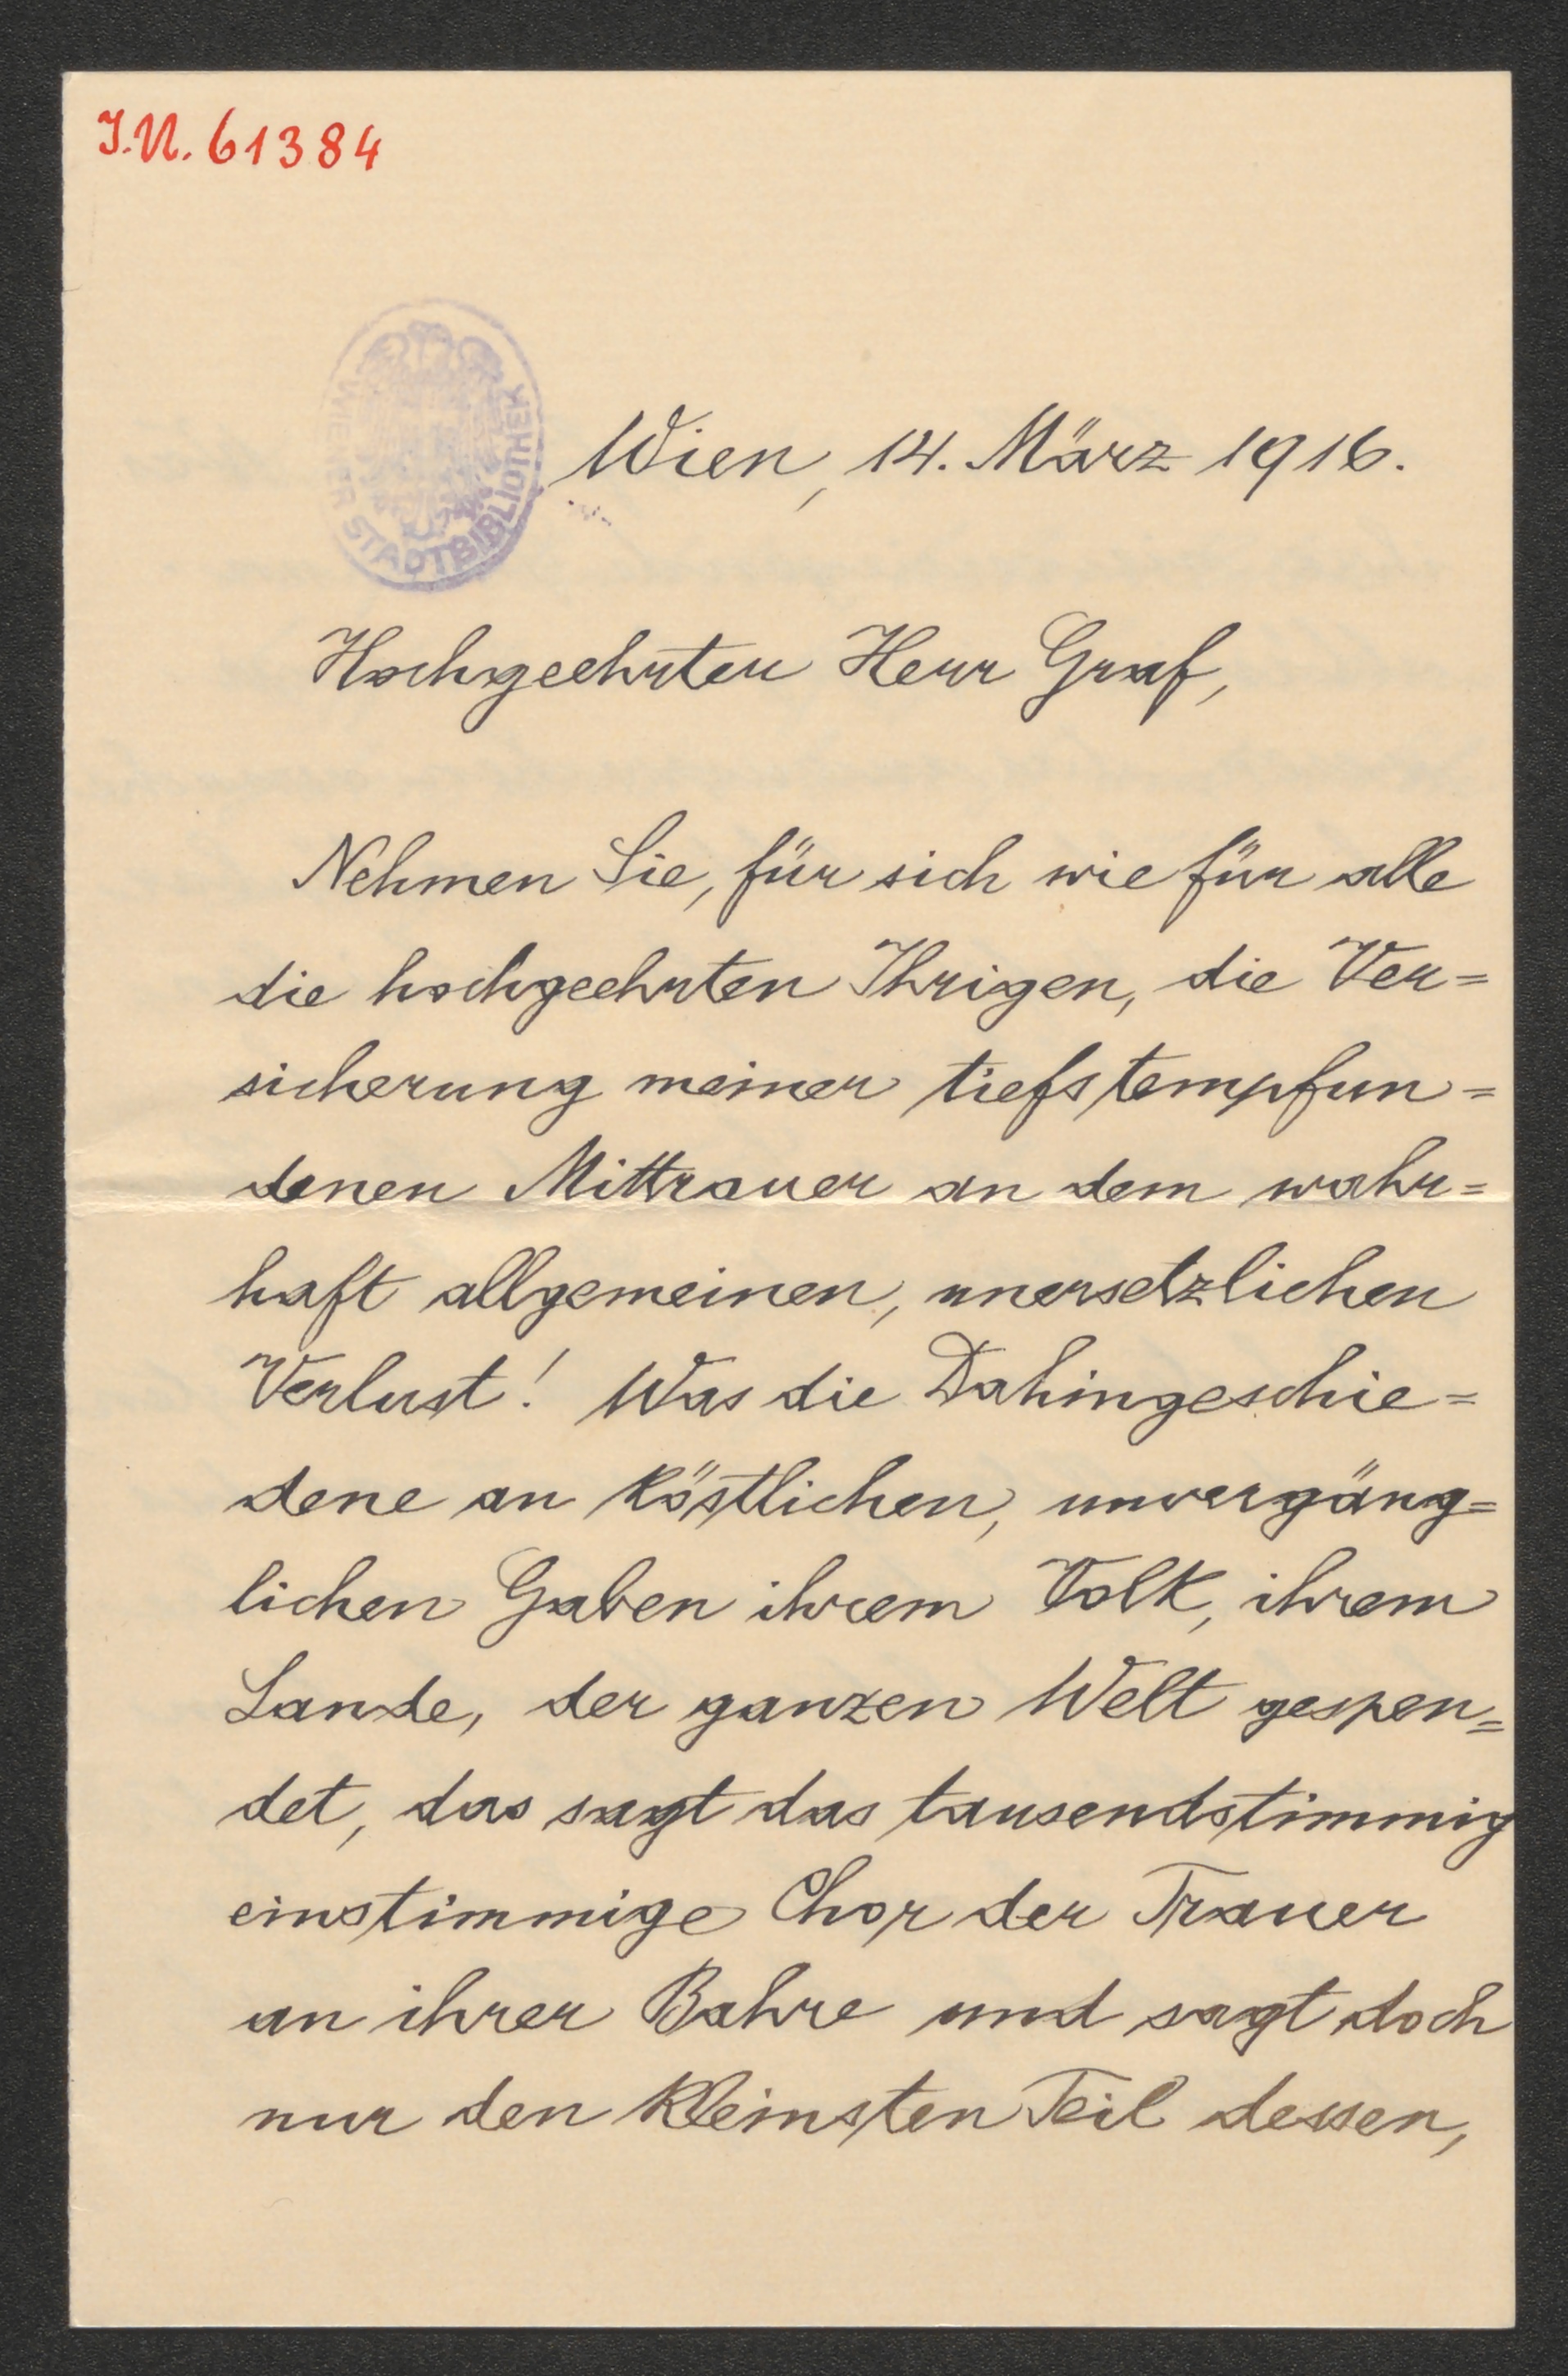 J.N. 61384
WIENER STADTBIBLIOTHEK
Wien, 14. März 1916.
Hochgeehrter Herr Graf,
Nehmen Sie, für sich wie für alle
die hochgeehrten Ihrigen, die Ver=
sicherung meiner tiefstempfun=
denen Mittrauer an dem wahr=
haft allgemeinen, unersetzlichen
Verlust! Was die Dahingeschie=
dene an köstlichen, unvergäng=
lichen Gaben ihrem Volk, ihrem
Lande, der ganzen Welt gespen=
det, das sagt das tausendstimmig
einstimmige Chor der Trauer
an ihrer Bahre und sagt doch
nur den kleinsten Teil dessen,